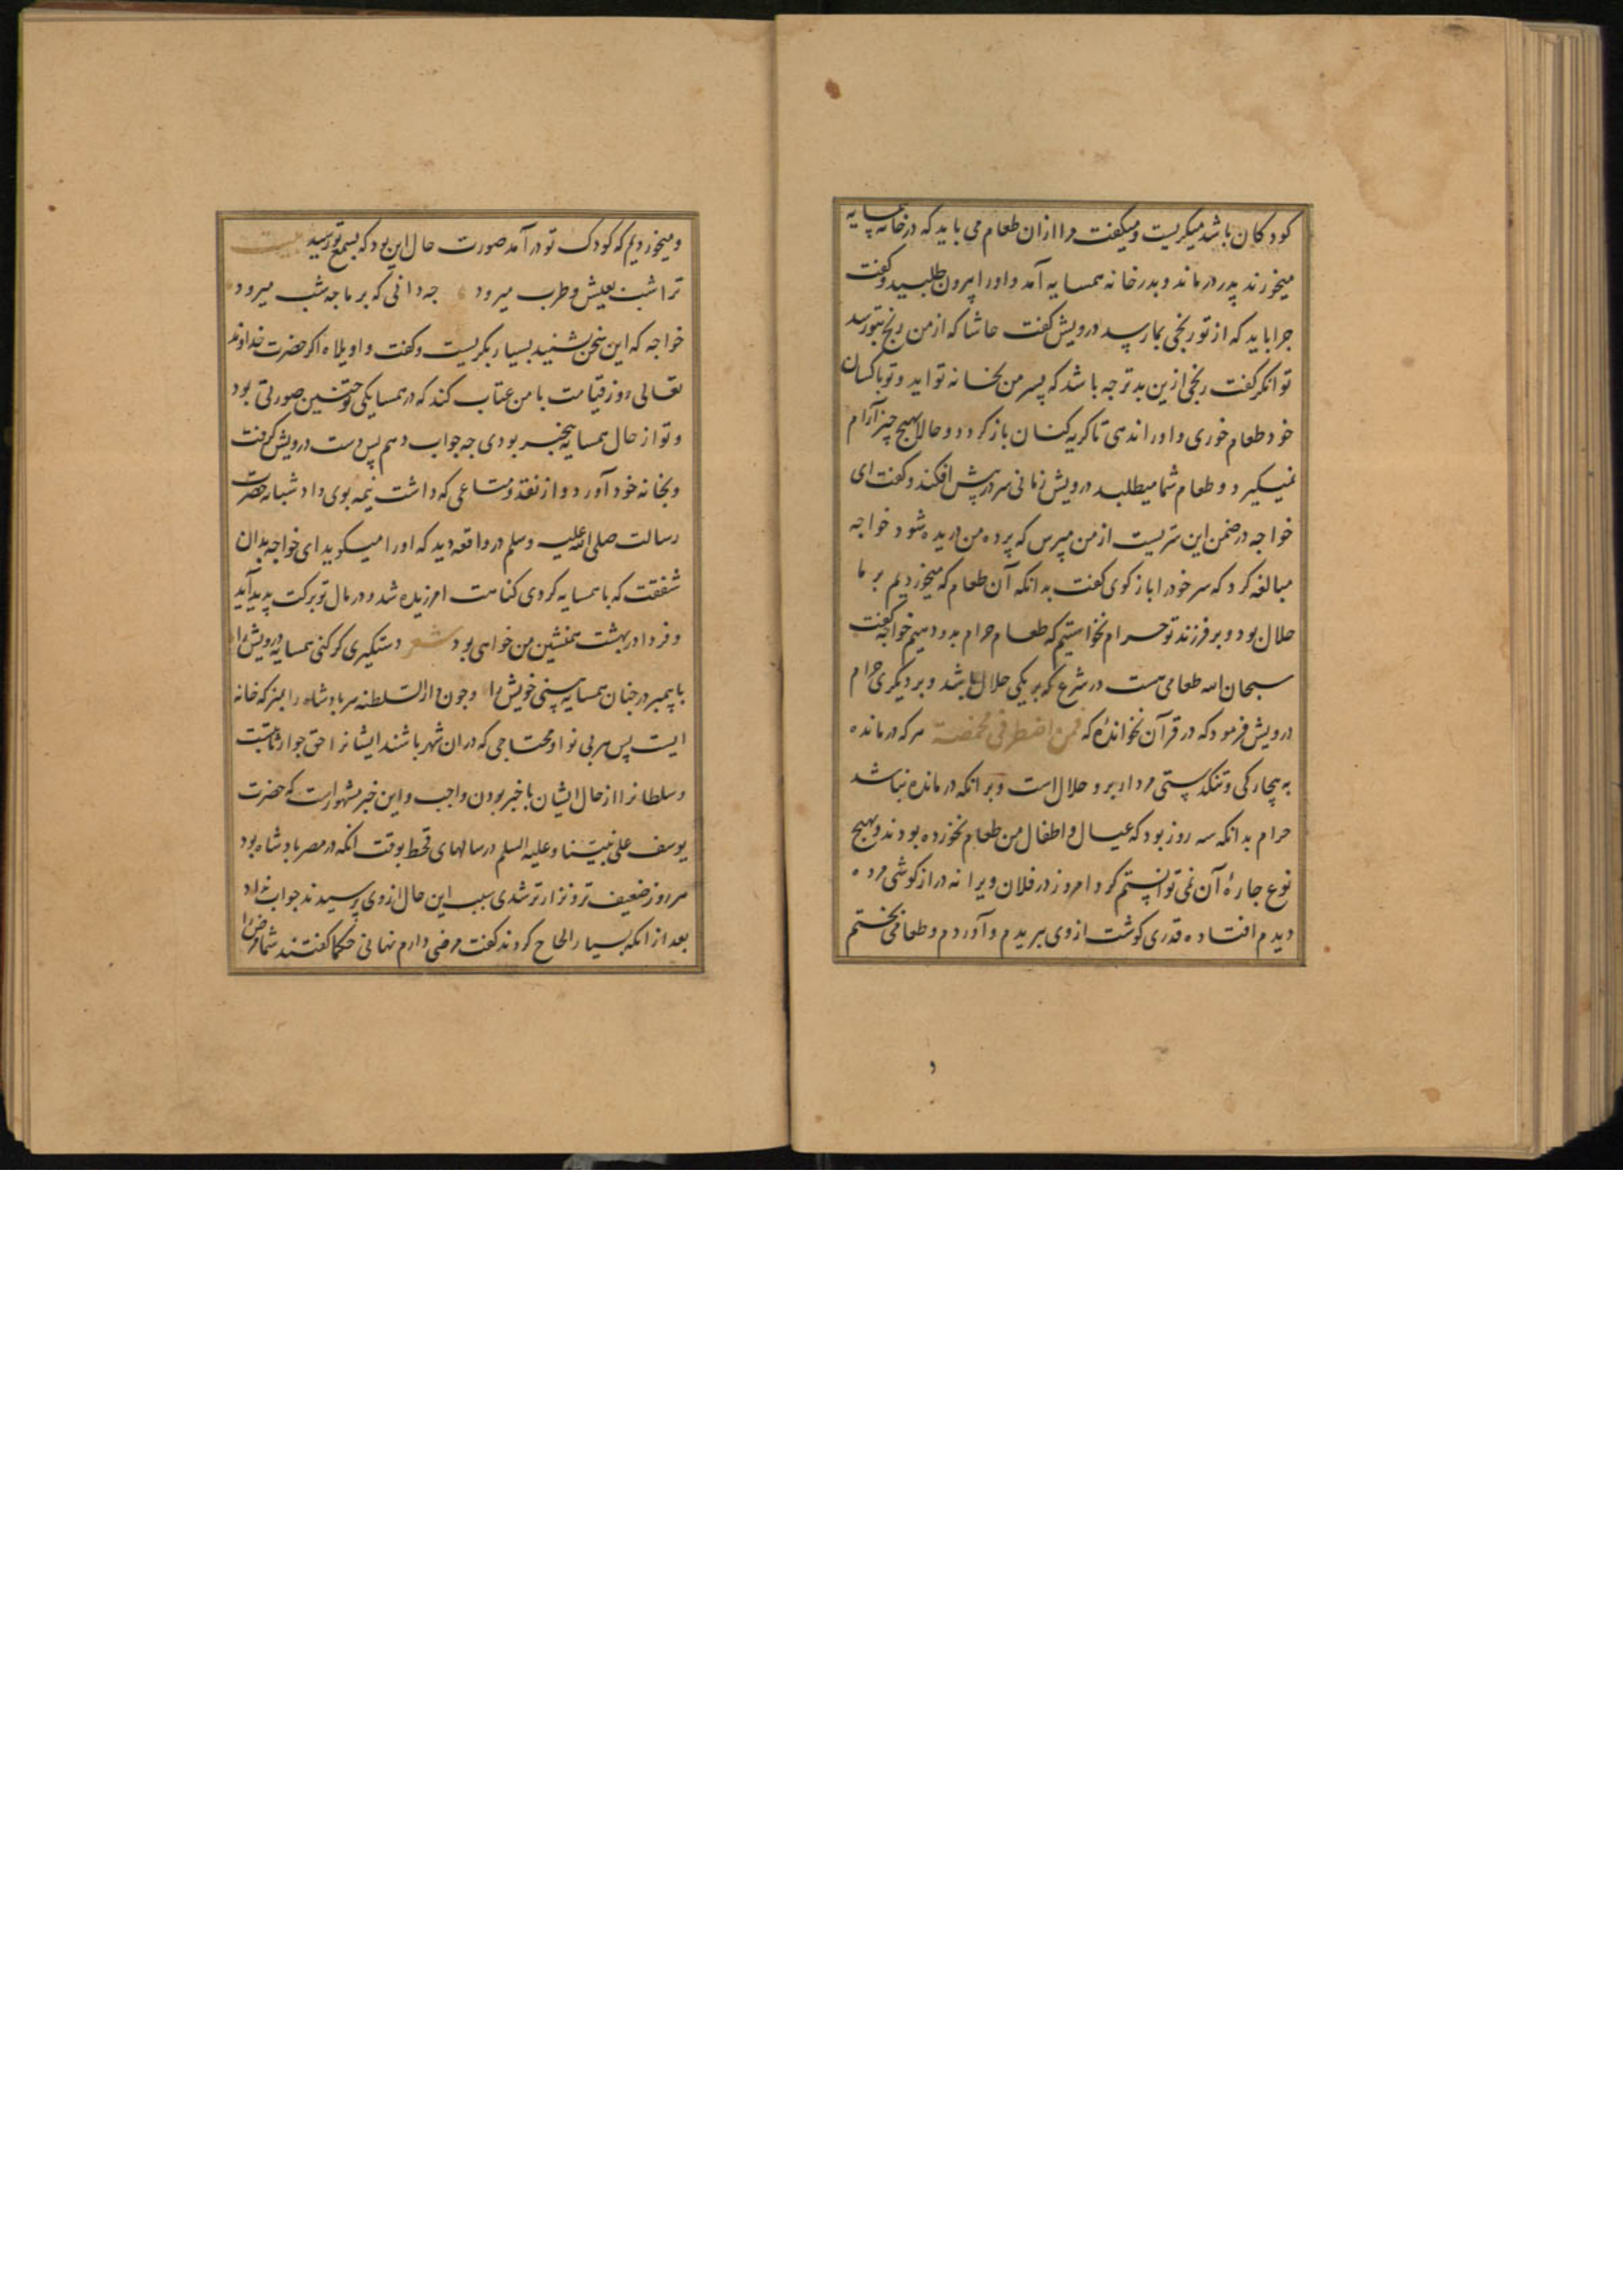 کودکان باشد میکریست و میکفت مرا ازان طعام می باید که در خانه همسایه
میخورند پدر درماند و بدر خانه همسایه آمد و اورا بیرون طلبید و کفت
جرا باید که از تو رنجی بما رسد درویش کفت حاشا که از من رنج بتو رسد
توانکر کفت رنجی ازین بدتر جه باشد که پسر من بخانه تو اید و تو باکسان
خود طعام خوری و اورا ندهی تا کریه کنان باز کردد و حالا بهیج چیز آرام
نمیکیرد و طعام شما میطلبد درویش زمانی سر در پیش افکند و کفت ای
خواجه در ضمن این سریست از من مپرس که پرده من دریده شود خواجه
مبالغه کرد که سر خود را باز کوی کفت بدانکه آن طعام که میخوردیم بر ما
حلال بود و بر فرزند تو حرام نخواستیم که طعام حرام بدو دهیم خواجه کفت
سبحان الله طعامی هست در شرع که بر یکی حلال باشد و بر دیکری حرام
درویش فرمود که در قرآن نخوانده که فمن اضطر فی مخمصة هر که درمانده
به بیچارکی و تنکدستی مردار برو حلال است و بر انکه درمانده نباشد
حرام بدانکه سه روز بود که عیال و اطفال من طعام نخورده بودند و بهیج
نوع جاره آن نمی توانستم کرد امروز در فلان ویرانه درازکوشی مرده
دیدم افتاده قدری کوشت از وی ببریدم و آوردم و طعامی پختم
و میخوردیم که کودک تو در آمد صورت حال این بود که بسمع تو رسید بیت
ترا شب بعیش و طرب میرود جه دانی که بر ما جه شب میرود
خواجه که این سخن بشنید بسیار بکریست و کفت واویلاه اکر حضرت خداوند
تعالی روز قیامت با من عتاب کند که در همسایکی تو جنین صورتی بود
و تو از حال همسایه بیخبر بودی جه جواب دهم پس دست درویش کرفت
و بخانه خود آورد و از نقد و متاعی که داشت نیمه بوی داد شبانه حضرت
رسالت صلی الله علیه وسلم در واقعه دید که اورا میکوید ای خواجه بدان
شفقت که با همسایه کردی کناهت امرزیده شد و در مال تو برکت پدید آید
و فردا در بهشت همنشین من خواهی بود شعر دستکیری کر کنی همسایه درویش را
با پیمبر در جنان همسایه بینی خویش را و جون دار السلطنه هر پادشاه را بمنزله خانه
ایست پس هر بی نوا و محتاجی که دران شهر باشند ایشانرا حق جوار ثابتست
و سلطانرا از حال ایشان باخبر بودن واجب و این خبر مشهور است که حضرت
یوسف علی نبینا وعلیه السلم در سالهای قحط بوقت انکه در مصر پادشاه بود
هر روز ضعیف تر و نزارتر شدی سبب این حال از وی پرسیدند جواب نداد
بعد از انکه بسیار الحاح کردند کفت مرضی دارم نهانی حکما کفتند شما مرض را